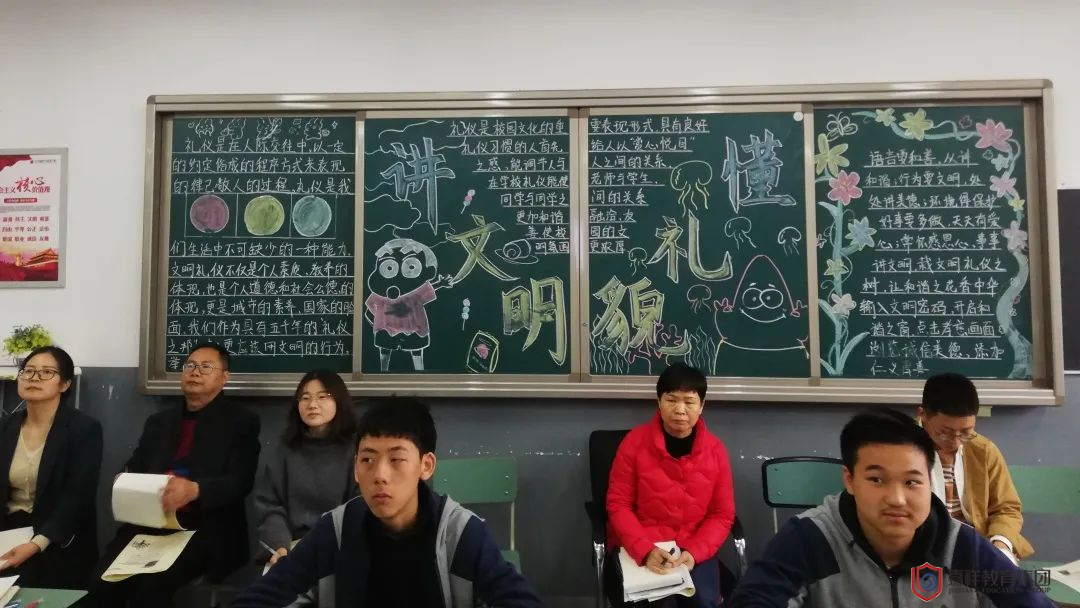 核心
价值观
富强 民主 文明 和谐
自由 平等 公正 法治
爱国 敬业 诚信 友善
礼仪是在人际交往中,以一定
的约定俗成的程序方式来表现
的律己敬人的过程,礼仪是我
们生活中不可缺少的一种能力.
文明礼仪不仅是个人素质、教养的
体现,也是个人道德和社会公德的
体现,更是城市的素养、国家的脸
面,我们作为具有五千年的礼仪
文明的行为.
讲文明
懂礼貌
礼仪是校园文化的重要表现形式,具有良好
礼仪习惯的人首先给人以"赏心悦目"
之感,能调于人与人之间的关系.
在学校礼仪能使老师与学生、
同学与同学之间的关系
更加和谐融洽.友
善使校园的文
明氛围更浓厚
语言要和善,从讲
和谐;行为要文明,处
处讲美德;环境得保护
好事要多做,天天有爱
心;常怀感恩心,事事
讲文明.栽文明礼仪之
树,让和谐之花香中华
输入文明密码,开启和
谐之窗,点击考范画面
浏览诚信美德,添加
仁义
嘉祥教育集团